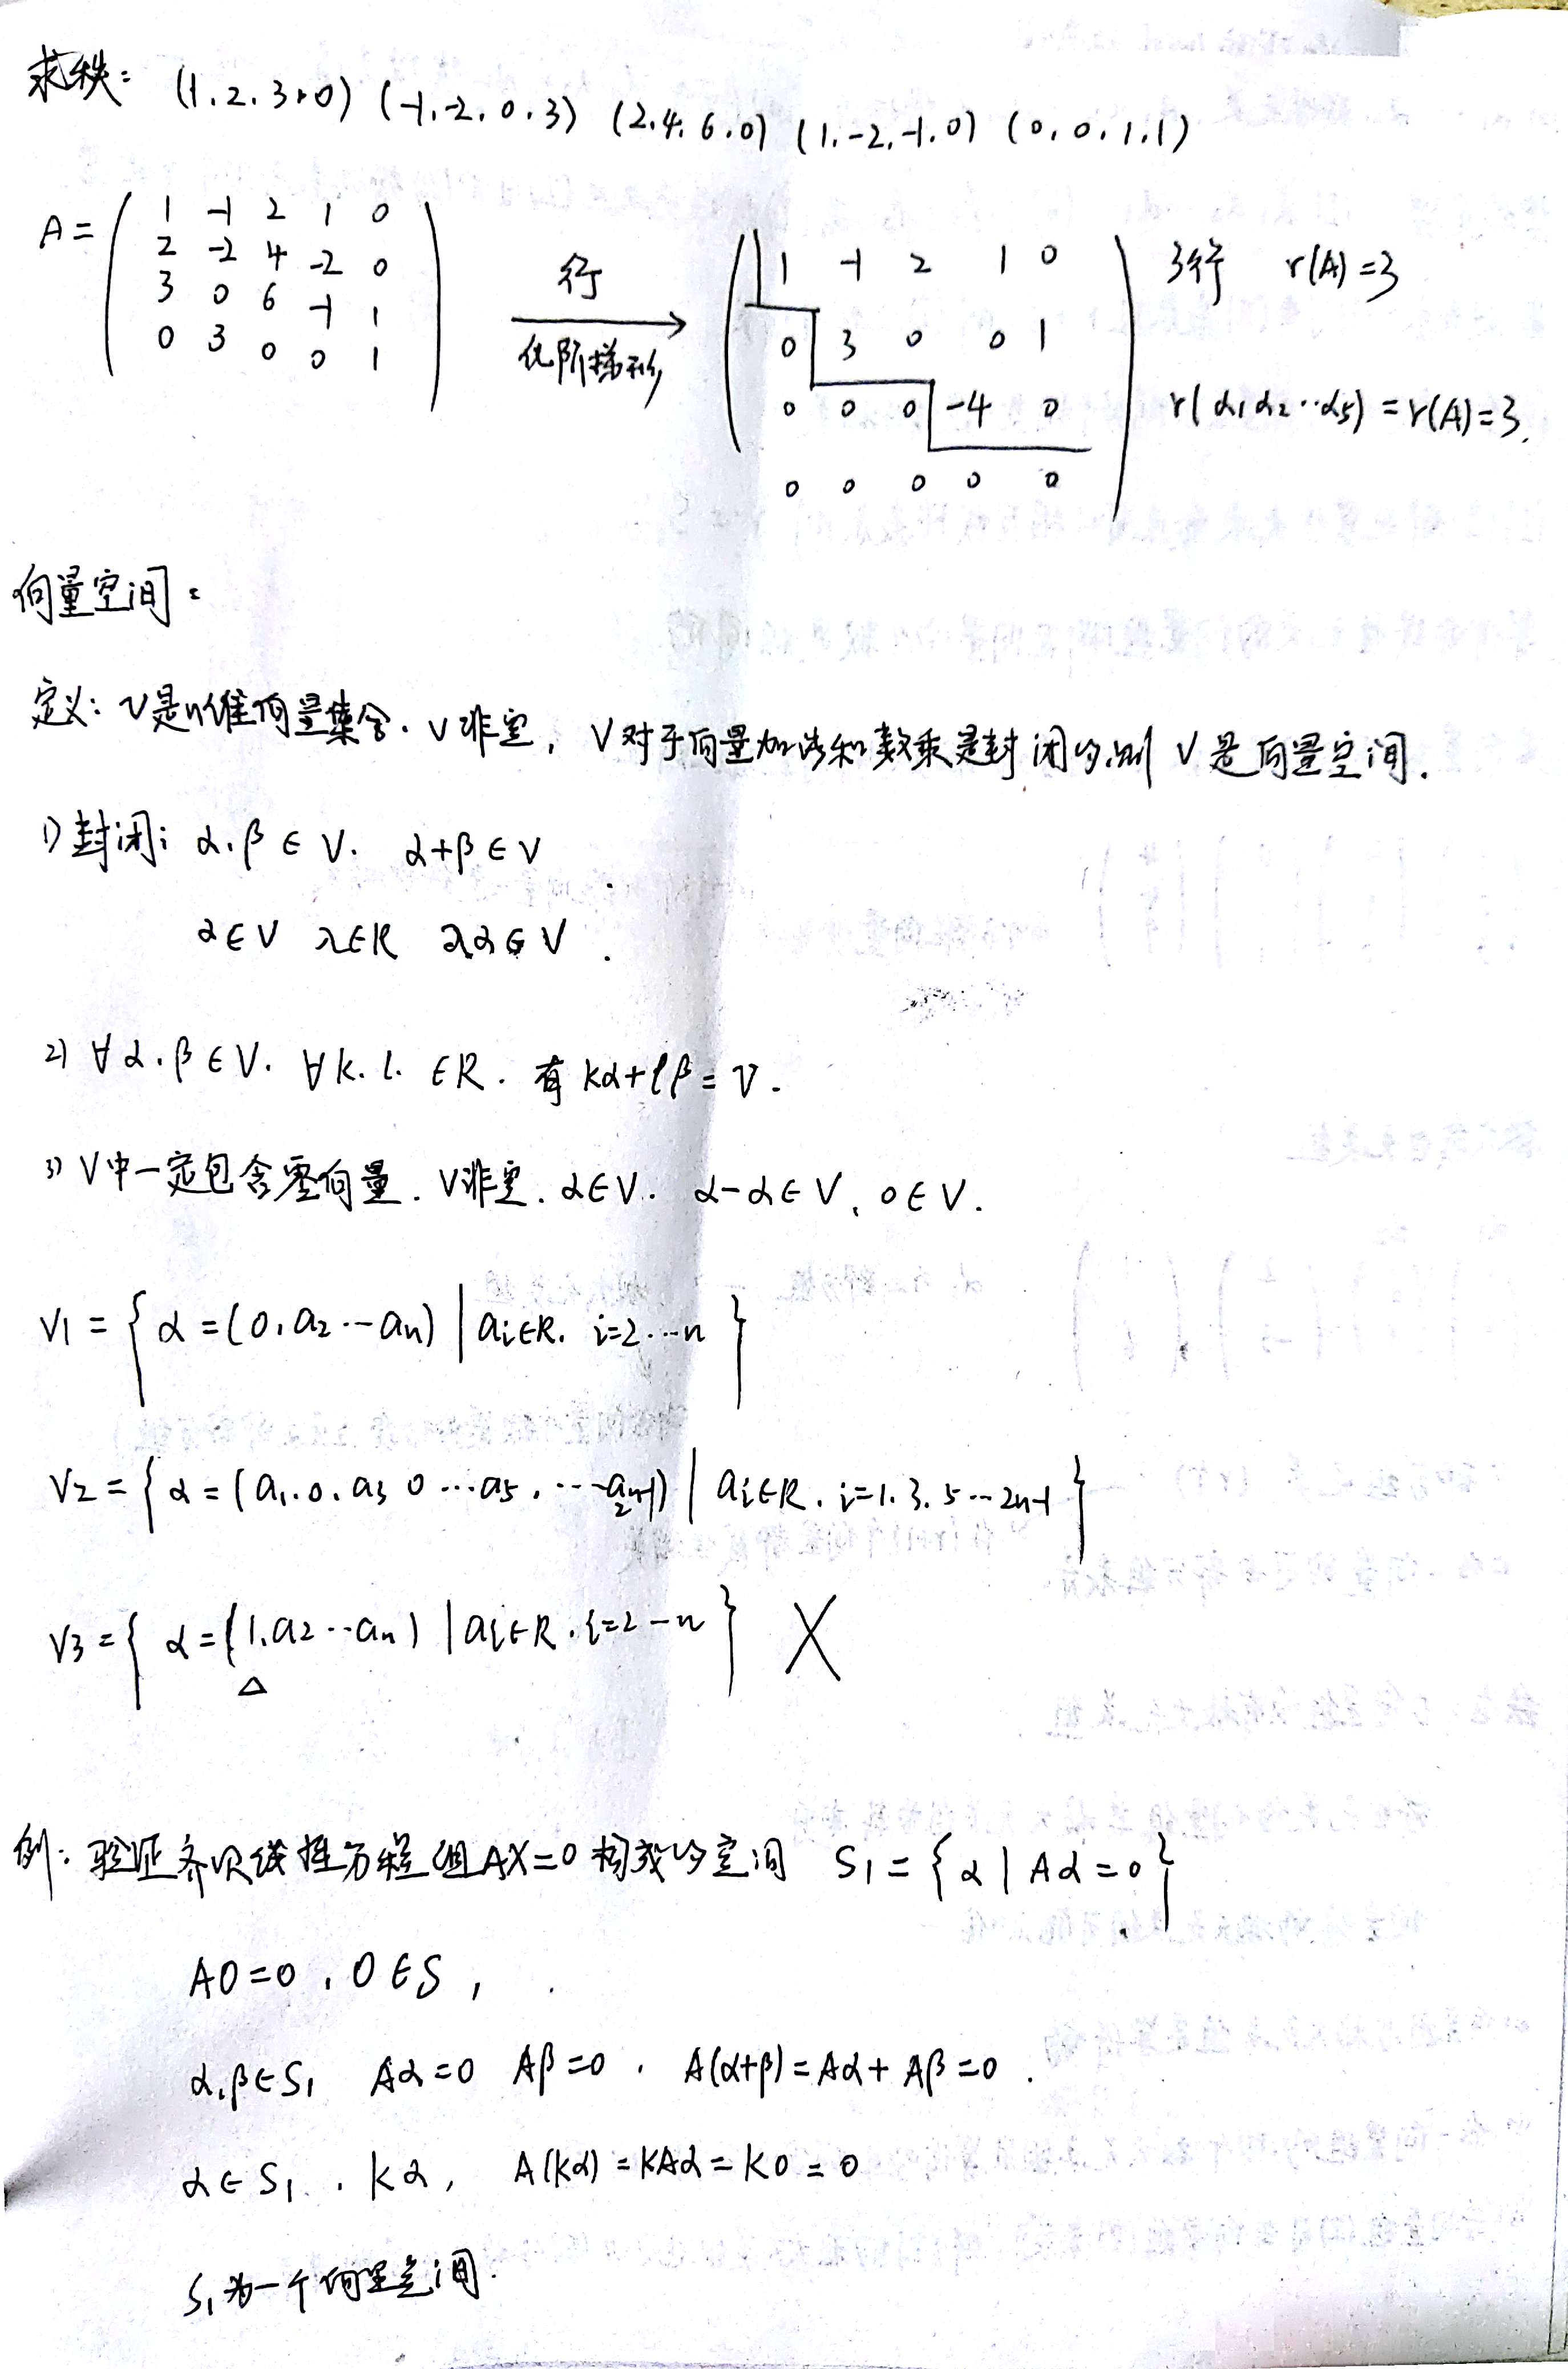 求秩: (1.2.3.0) (-1.-2.0.3) (2.4.6.0) (1.-2.-1.0) (0.0.1.1)
A= ( 1 -1 2 1 0
2 -2 4 -2 0
3 0 6 -1 1
0 3 0 0 1 )
行
化阶梯形
( 1 -1 2 1 0
0 3 0 0 1
0 0 0 -4 0
0 0 0 0 0 )
3行 r(A)=3
r(α1α2··α5)=r(A)=3.
向量空间:
定义: V是n维向量集合. V非空, V对于向量加法和数乘是封闭的,则 V是向量空间.
1) 封闭: α.β∈V. α+β∈V
α∈V λ∈R λα∈V.
2) ∀α.β∈V. ∀k.l. ∈R. 有 kα+lβ=V.
3) V中一定包含零向量. V非空. α∈V. α-α∈V, 0∈V.
V1={ α=(0,a2···an) | ai∈R. i=2···n }
V2={ α=(a1.0.a3 0···a5.···a2n-1) | ai∈R. i=1.3.5···2n-1 }
V3={ α=(1.a2···an) | ai∈R. i=2-n } X
△
例: 验证齐次线性方程组AX=0构成的空间 S1={α|Aα=0}
A0=0, 0∈S,
α,β∈S1 Aα=0 Aβ=0. A(α+β)=Aα+Aβ=0.
α∈S1. kα, A(kα)=kAα=k0=0
S1为一个向量空间.